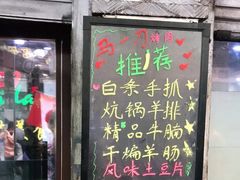 马一刀 烤肉
推荐
白条手抓
炕锅羊排
精品牛腩
干煸羊肠
风味土豆片